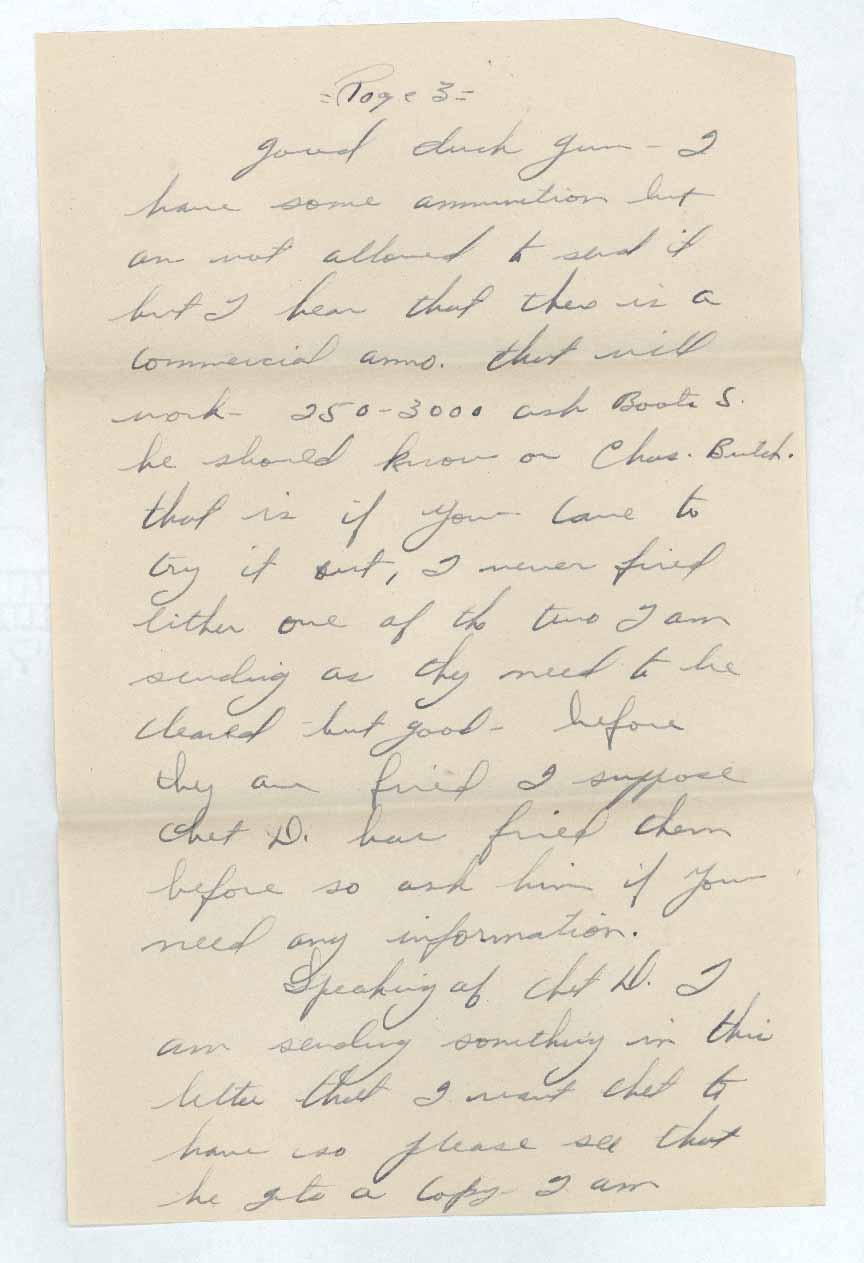 =Page 3=
good duck gun - I
have some ammunition but
am not allowed to send it
but I hear that there is a
commercial ammo. that will
work - 250-3000 ask Boots S.
he should know or Chas. Butch.
that is if you care to
try it out, I never fired
either one of the two I am
sending as they need to be
cleaned - but good - before
they are fired I suppose
Chet D. has fired them
before so ask him if you
need any information.
Speaking of Chet D. I
am sending something in this
letter that I want Chet to
have so please see that
he gets a copy - I am